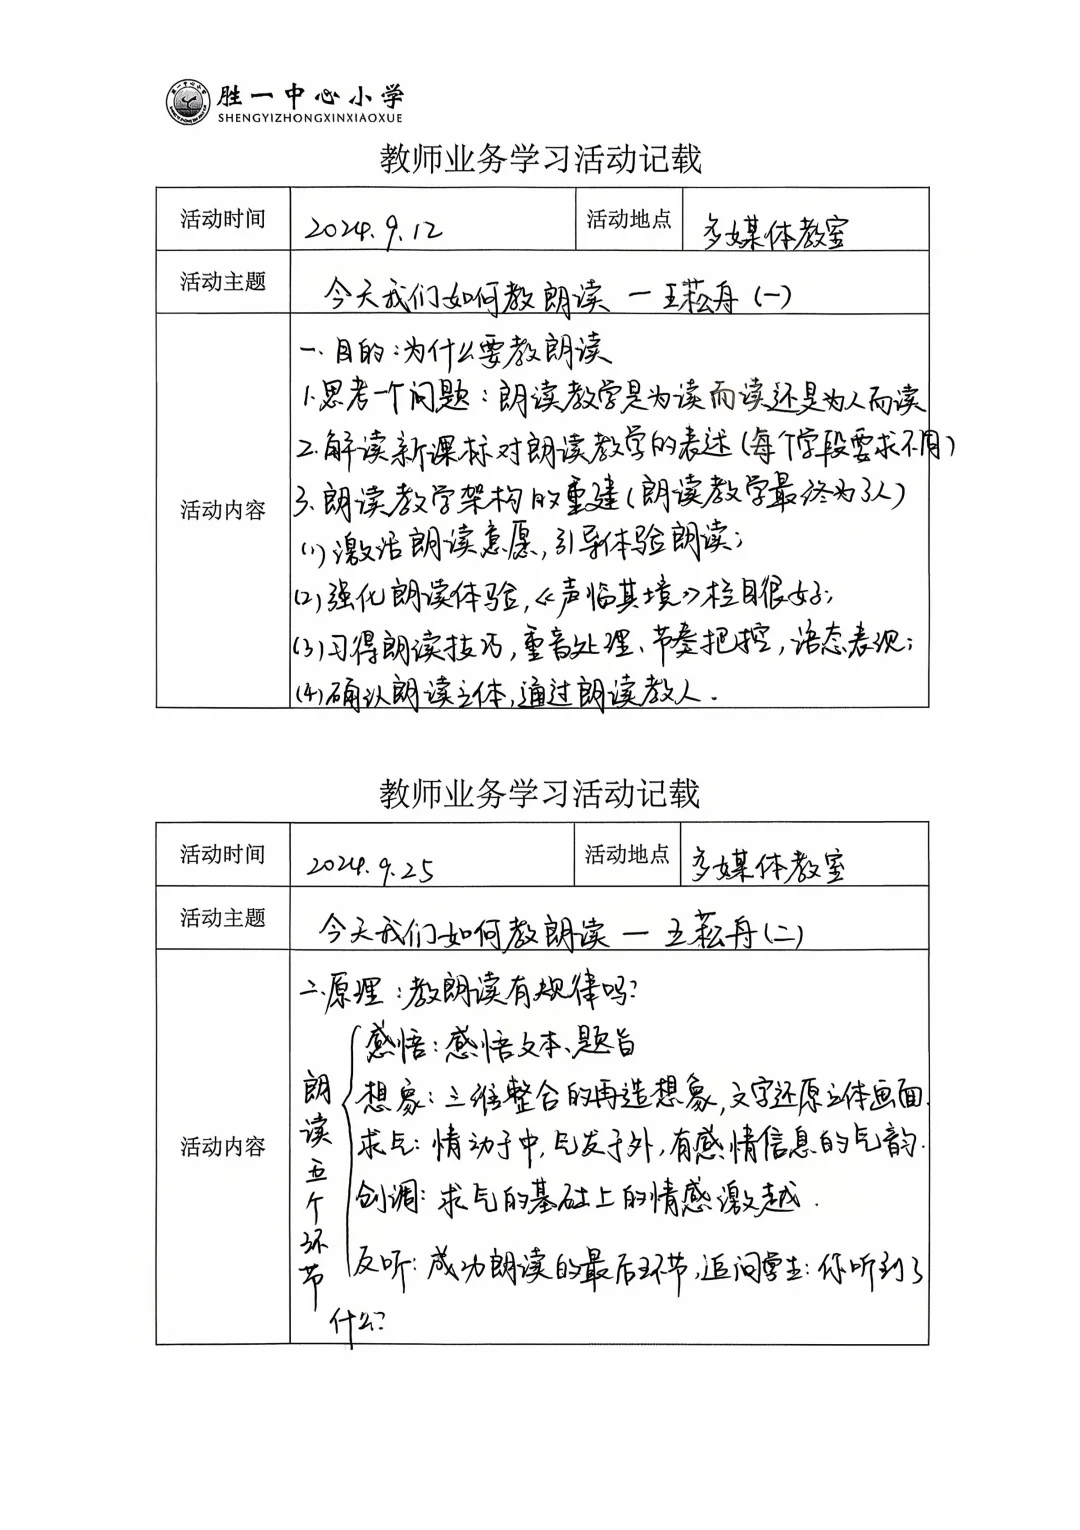 胜一中心小学
SHENGYIZHONGXINXIAOXUE
教师业务学习活动记载
活动时间 2024.9.12 活动地点 多媒体教室
活动主题 今天我们如何教朗读 — 王崧舟(一)
活动内容
一、目的:为什么要教朗读
1.思考一个问题:朗读教学是为读而读还是为人而读
2.解读新课标对朗读教学的表述(每个学段要求不同)
3.朗读教学架构的重建(朗读教学最终为了人)
(1)激活朗读意愿,引导体验朗读;
(2)强化朗读体验,《声临其境》栏目很好;
(3)习得朗读技巧,重音处理、节奏把控,语态表现;
(4)确认朗读立体,通过朗读教人.
教师业务学习活动记载
活动时间 2024.9.25 活动地点 多媒体教室
活动主题 今天我们如何教朗读 — 王崧舟(二)
活动内容
二、原理:教朗读有规律吗?
朗读五个环节
感悟:感悟文本、题旨
想象:三维整合的再造想象,文字还原立体画面.
求气:情动于中,气发于外,有感情信息的气韵.
创调:求气的基础上的情感激越.
反听:成功朗读的最后环节,追问学生:你听到了
什么?